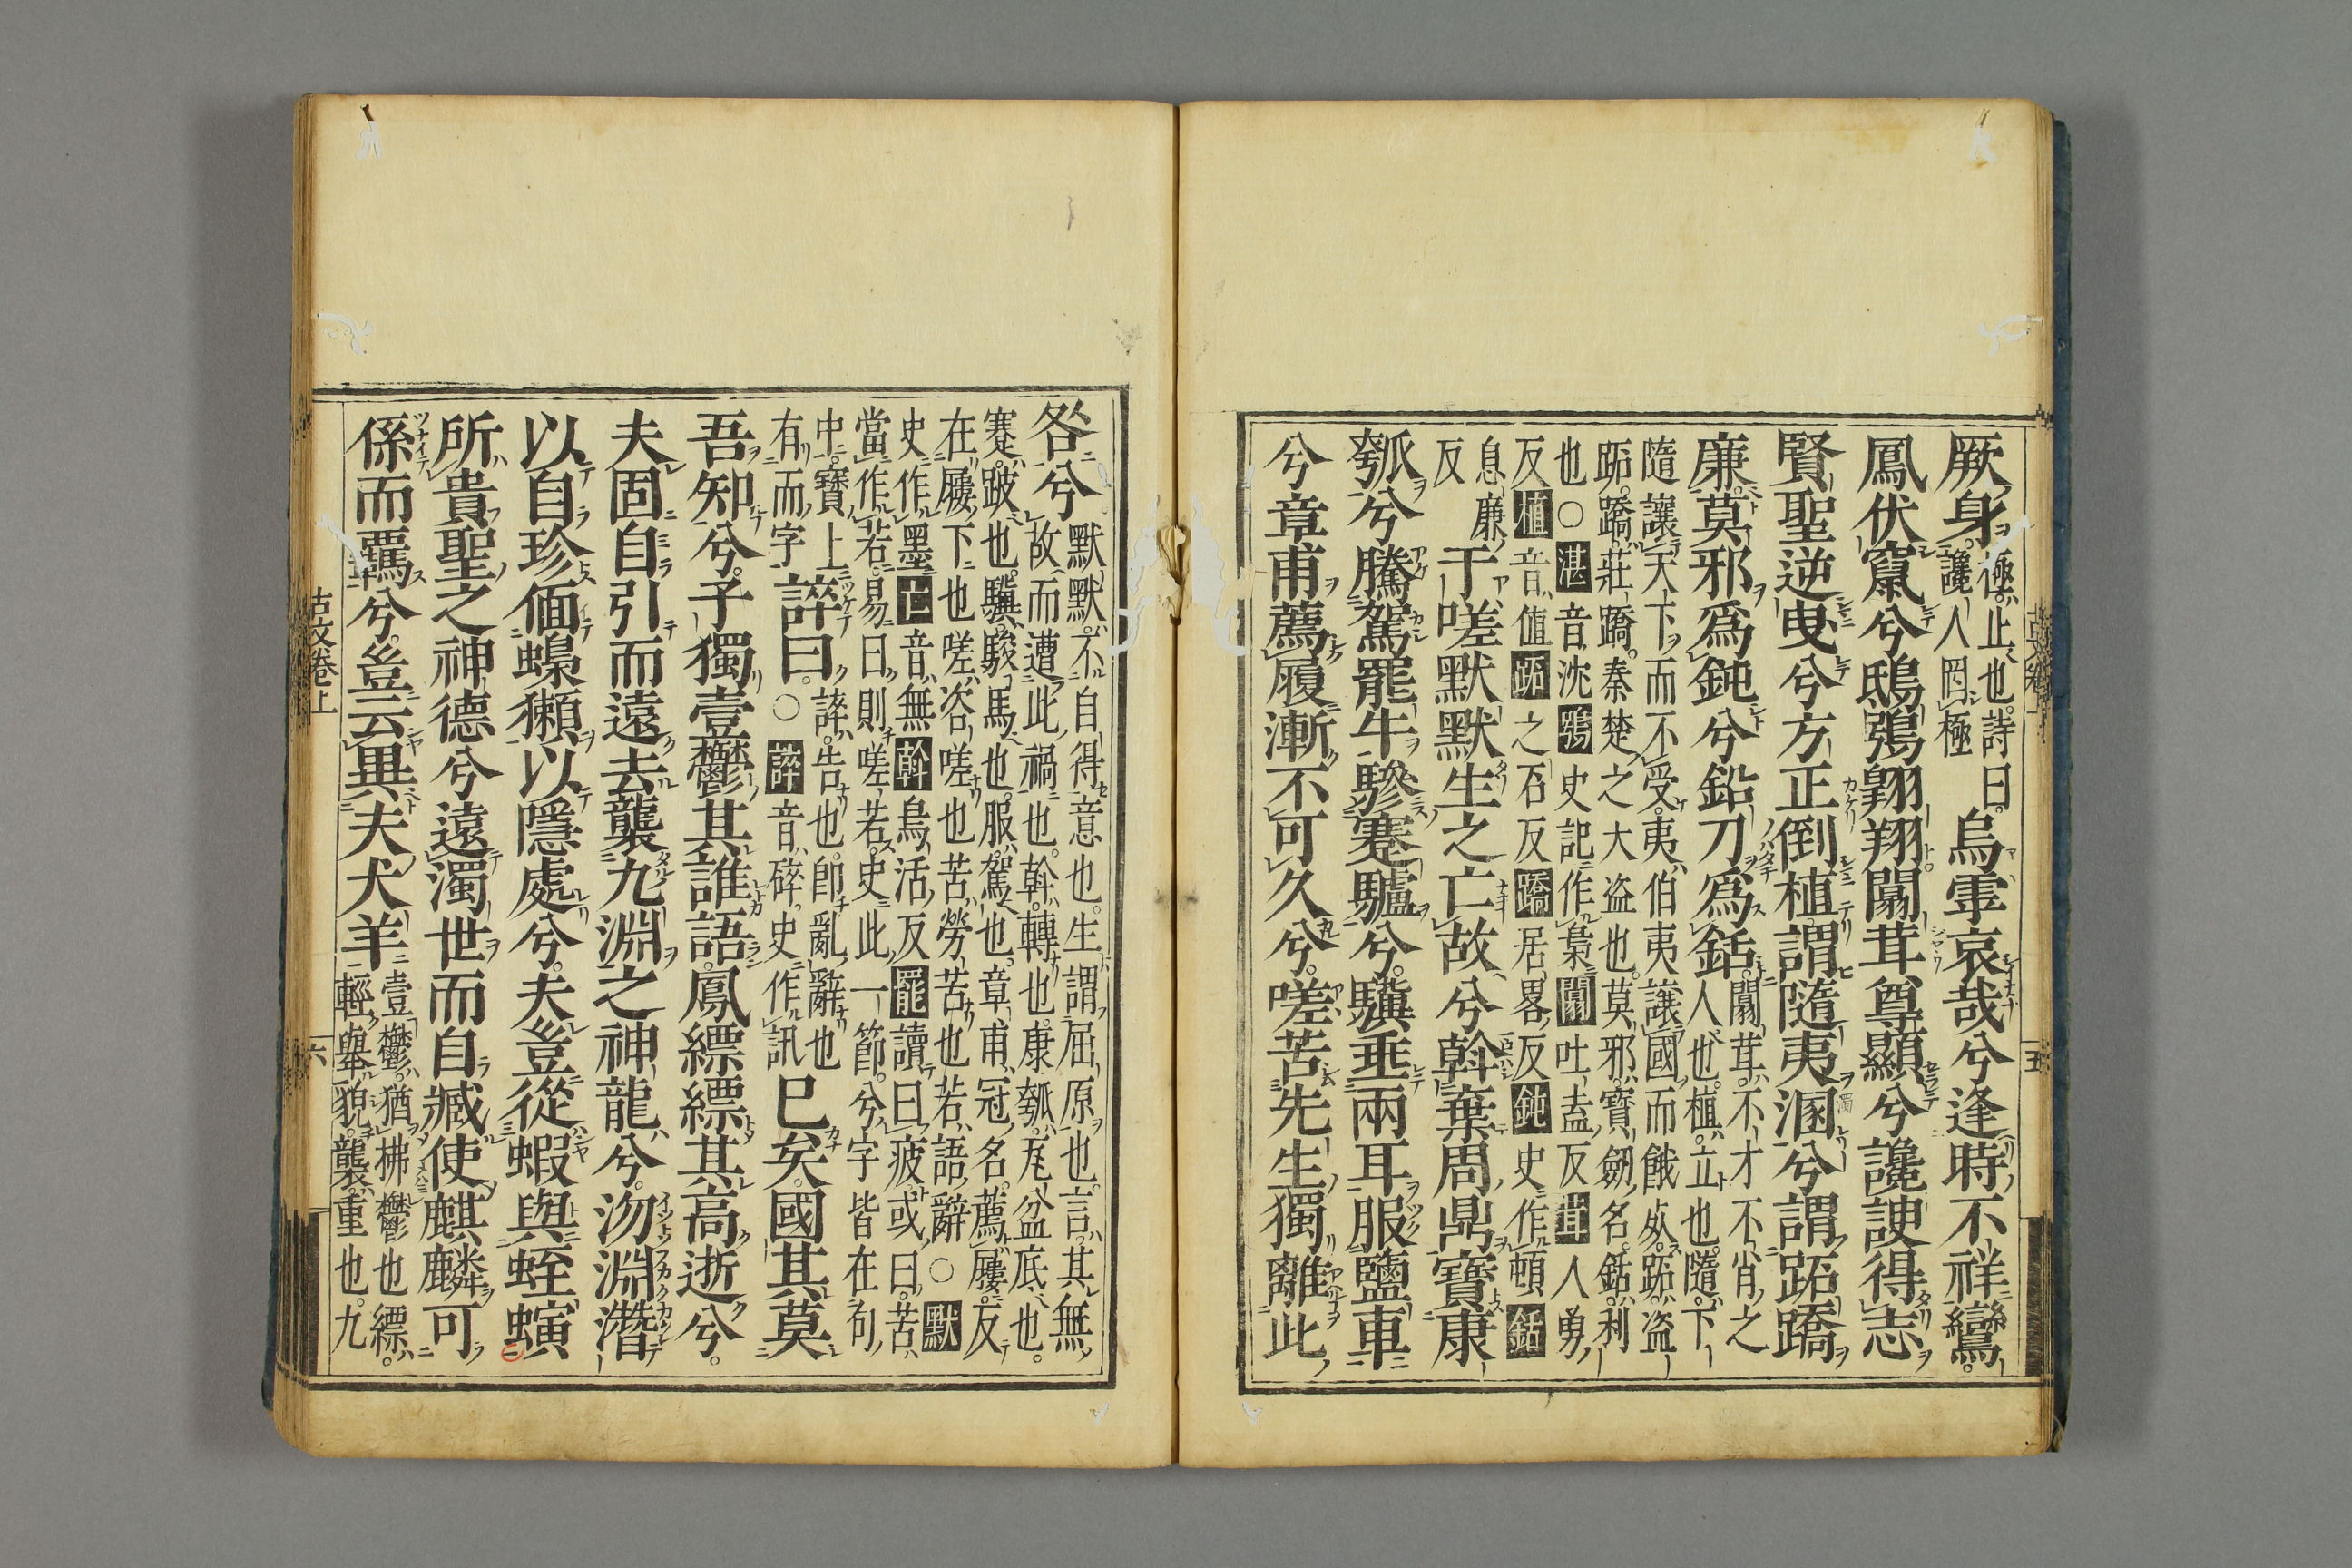 厥身。極止也。詩曰。讒人罔極烏虖哀哉兮逢時不祥鸞。
鳳伏竄兮鴟鴞翺翔闒茸尊顯兮讒諛得志
賢聖逆曳兮方正倒植謂隨夷溷兮謂跖蹻
廉莫邪爲鈍兮鉛刀爲銛。闒茸不才不肖之人也。植立也。隨下
隨讓天下而不受。夷伯夷讓國而餓死。跖盜
跖。蹻莊蹻。秦楚之大盗也。莫邪寶劒名。銛利
也○湛音沈鴞史記作梟闒吐盍反茸人勇
反植音値跖之石反蹻居畧反鈍史作頓銛
息廉反于嗟默默生之亡故兮斡棄周鼎寶康
瓠兮騰駕罷牛驂蹇驢兮。驥垂兩耳服鹽車
兮章甫薦履漸不可久兮。嗟苦先生獨離此
咎兮默默不自得意也。生謂屈原也。言其無故而遭此禍也。斡轉也。康瓠瓦盆底也。
蹇跛也。驥駿馬也。服駕也。章甫冠名。薦屨反
在屨下也嗟咨嗟也苦勞苦也若語辭○默
史作墨亡音無斡烏活反罷讀曰疲或曰。苦
當作若易曰則嗟若史此一節。兮字皆在句
中。寶上有而字誶曰。誶告也。卽亂辭也○誶音碎。史作訊巳矣。國其莫
吾知兮。子獨壹鬱其誰語。鳳縹縹其高逝兮。
夫固自引而遠去襲九淵之神龍兮。沕淵潛
以自珍偭蟂獺以隱處兮。夫豈從蝦與蛭螾
所貴聖之神德兮遠濁世而自臧使麒麟可
係而羈兮。豈云異夫犬羊壹鬱。猶怫鬱也縹。輕舉貌。襲。重也。九
古文卷上
六
五